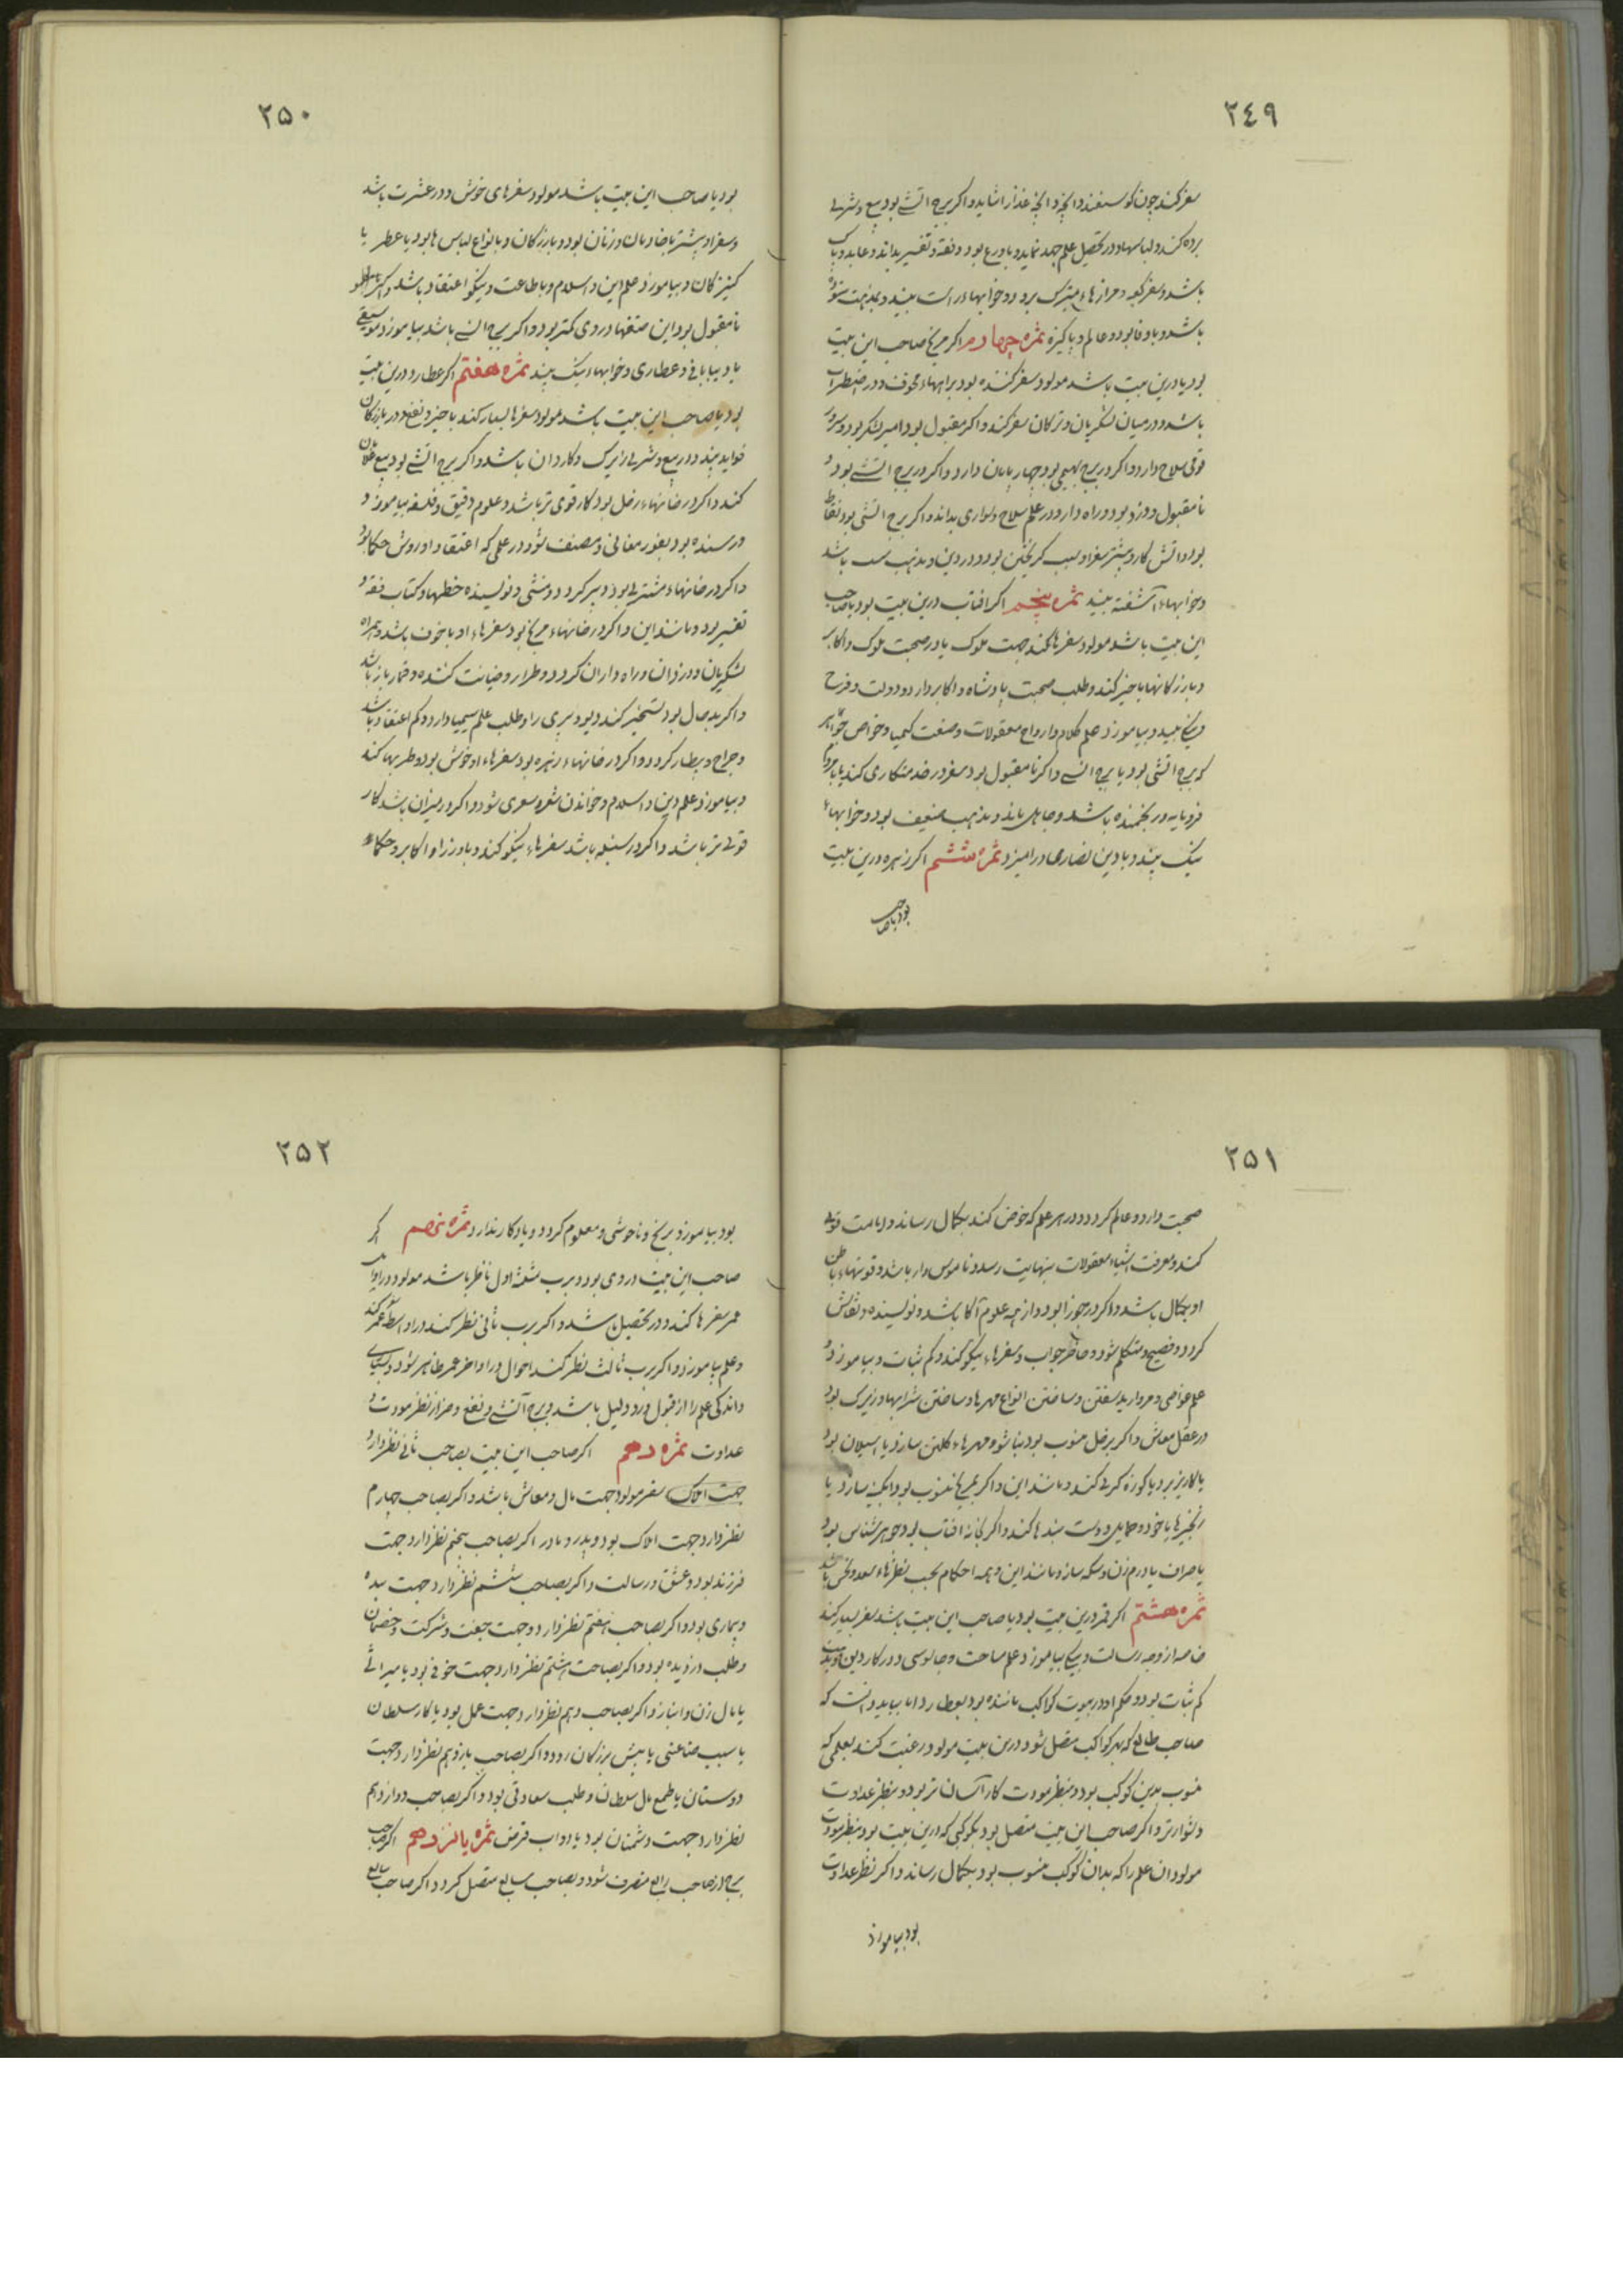 ٢٤٩
سفر کند چون کوسفند و آنچه غذا را شاید و اکر برج اتشی بود بیع و شری
برده کند و لباسها و در تحصیل علم جهد نماید و با ورع بود و فقه و تفسیر بداند و عابد و پاک
باشد و سفر کعبه و مزارهاء متبرک برود و خوابهاء راست بیند و بدین ستوده
باشد و با وفا بود و عالم و پاکیزه ثمره چهارم اکر مریخ صاحب این بیت
بود یا درین بیت باشد مولود سفر کننده بود براههاء مخوف و در اضطراب
باشد و در میان لشکریان و ترکان سفر کند و اکر مقبول بود امیر لشکر بود و سرور
قوی سلاح دارد و اکر در برج بهیمی بود چهارپایان دارد و اکر در برج اتشی بود و
نا مقبول دزد بود و راه دارد و در علم سلاح و سواری بداند و اکر برج اتشی بود نفاط
بود و اتش کار و بیشتر سفر او بسبب کریختن بود و در دین و مذهب سست باشد
و خوابهاء آشفته بیند ثمره پنجم اکر افتاب درین بیت بود یا صاحب
این بیت باشد مولود سفرها کند جهت ملوک یا در صحبت ملوک و اکابر
و بازرکانیها با خیر کند و طلب صحبت پادشاه و اکابر دارد و دولت و فرح
و نیکی بیند و بیاموزد علم کلام و ارواح معقولات و صنعت کیمیا و خواص جواهر
که برج اتشی بود یا برج انسی و اکر نا مقبول بود سفر در خدمتکاری کند یا با مردم
فرومایه و رنجمنده باشد و جاهل ماند و مذهب ضعیف بود و خوابهاء
نیک بیند و با دین نصاری در امیزد ثمره ششم اکر زهره درین بیت
بود یا صاحب
٢٥٠
بود یا صاحب این بیت باشد مولود سفرهای خوش و در عشرت باشد
و سفر او بیشتر با خادمان و زنان بود و بازرکان و با انواع لباس ها بود یا عطر یا
کنیزکان و بیاموزد علم این و اسلام و با طاعت و نیکو اعتقاد باشد و اکر
نا مقبول بود این صفتها در وی کمتر بود و اکر برج انسی باشد بیاموزد موسیقی
یا دیبا بافی و عطاری و خوابهاء نیک بیند ثمره هفتم اکر عطارد درین بیت
بود یا صاحب این بیت باشد مولود سفرها بسیار کند با خیر و نفع و در بازرکان
فواید بیند و در بیع و شری زیرک و کاردان باشد و اکر برج اتشی بود بیع غلامان
کند و اکر در خانهاء زحل بود کار قوی تر باشد و علوم دقیق و فلسفه بیاموزد و
در رسنده بود بغور معانی و مصنف شود در علمی که اعتقاد او روش حکما بود
و اکر در خانهاء مشتری بود دبیر کردد و منشی و نویسنده خطها و کتاب فقه و
تفسیر بود و مانند این و اکر در خانهاء مریخ بود سفرهاء او با خوف باشد و همراه
لشکریان و دزدان و راه داران کردد و طرار و خیانت کننده و قمار باز باشد
و اکر بد حال بود تسخیر کند دیو و پری را و طلب علم سیمیا دارد و کم اعتقاد باشد
و جراح و بیطار کردد و اکر در خانهاء زهره بود سفرهاء او خوش بود و طربها کند
و بیاموزد علم دین و اسلام و خواندن شعر و معری شود و اکر در میزان باشد کار
قوی تر باشد و اکر در سنبله باشد سفرهاء نیکو کند و با وزرا و اکابر و حکماء
٢٥١
صحبت دارد و عالم کردد و در هر علم که خوض کند بکمال رساند و امامت قوی
کند و معرفت اشیاء معقولات بنهایت رسد و ناموس دار باشد و قوتهاء باطن
او بکمال باشد و اکر در جوزا بود و از همه علوم آکاه باشد و نویسنده و نقاش
کردد و فصیح و متکلم شود و حاظر جواب و سفرهاء نیکو کند و کم ثبات و بیاموزد
علم غواصی و مروارید سفتن و ساختن انواع مهرها و ساختن شرابها و زیرک بود
در عقل معاش و اکر بزحل منسوب بود بنا شود و مهرهاء کلین سازد یا اسیلان بود
یا کاریز برد یا کوزه کری کند و مانند این و اکر بمریخ منسوب بود ابکینه سازد یا
زنجیرها یا خود و حمایل و دست بندها کند و اکر بخانه افتاب بود جوهر شناس بود
یا صراف یا درم زن و سکه ساز و مانند این و همه احکام بحسب نظرهاء سعد و نحس باشد
ثمره هشتم اکر قمر درین بیت بود یا صاحب این بیت باشد سفر بسیار کند
خاصه از وجه رسالت و نیکی بیاموزد علم مساحت و جاسوسی و در کار دین و مذهب
کم ثبات بود و حکم او در بیوت کواکب مانند بود بعطارد اما بباید دانست که
صاحب طالع که بهر کواکب متصل شود درین بیت مولود رغبت کند بعلمی که
منسوب بدین کوکب بود و بنظر مودت کار آسان تر بود و بنظر عداوت
دشوارتر و اکر صاحب این بیت متصل بود بکوکبی که درین بیت بود بنظر مودت
مولود ان علم را که بدان کوکب منسوب بود بکمال رساند و اکر نظر عداوت
بود بیاموزد
٢٥٢
بود بیاموزد برنج و ناخوشی و معلوم کردد و یادکار ندارد ثمره نهم اکر
صاحب این بیت در وی بود و برب مثلثه اول ناظر باشد مولود در اوایل
عمر سفرها کند و در تحصیل باشد و اکر برب ثانی نظر کند در اواسط عمر سفر کند
و علم بیاموزد و اکر برب ثالث نظر کند احوال در اواخر عمر ظاهر شود و بسیاری
و اندکی علم را از قبول و رد دلیل باشد و برج آتشی و نفع و ضر از نظر مودت و
عداوت ثمره دهم اکر صاحب این بیت بصاحب ثانی نظر دارد
جهت املاک سفر مولود جهت مال و معاش باشد و اکر بصاحب چهارم
نظر دارد جهت املاک بود و پدر و مادر اکر بصاحب پنجم نظر دارد جهت
فرزند بود و عشق و رسالت و اکر بصاحب ششم نظر دارد جهت بنده
و بیماری بود و اکر بصاحب هفتم نظر دارد و جهت جفت و شرکت و خصمان
و طلب دزدیده بود و اکر بصاحب هشتم نظر دارد جهت خوفی بود یا میراثی
یا مال زن و انباز و اکر بصاحب دهم نظر دارد جهت عمل بود یا کار سلطان
یا سبب صناعتی یا پیش بزرکان رود و اکر بصاحب یازدهم نظر دارد جهت
دوستان یا طمع مال سلطان و طلب سعادتی بود و اکر بصاحب دوازدهم
نظر دارد جهت دشمنان بود یا دواب قرض ثمره یازدهم اکر صاحب
برج از صاحب رابع منصرف شود و بصاحب سابع متصل کردد و اکر صاحب سابع